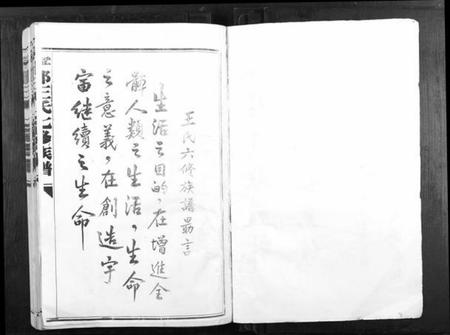 王氏六修族譜勗言
生活之目的,在增進全
體人類之生活,生命
之意義,在創造宇
宙繼續之生命
王氏七修族譜